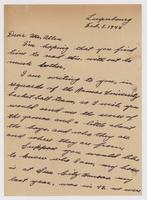 Luxembourg
Feb. 5, 1945
Dear Mr. Allen
I'm hoping that you find
time to read this, with out to
much bother.
I am writing to you, in
regards of the Kansas University
basketball team, as I wish you
would send me the scores of
the games and a little about
the boys and who they are
and where they are from.
Suppose you would like
to know who I am, my home
is at Kans City Kansas my
last year, was in 42 at